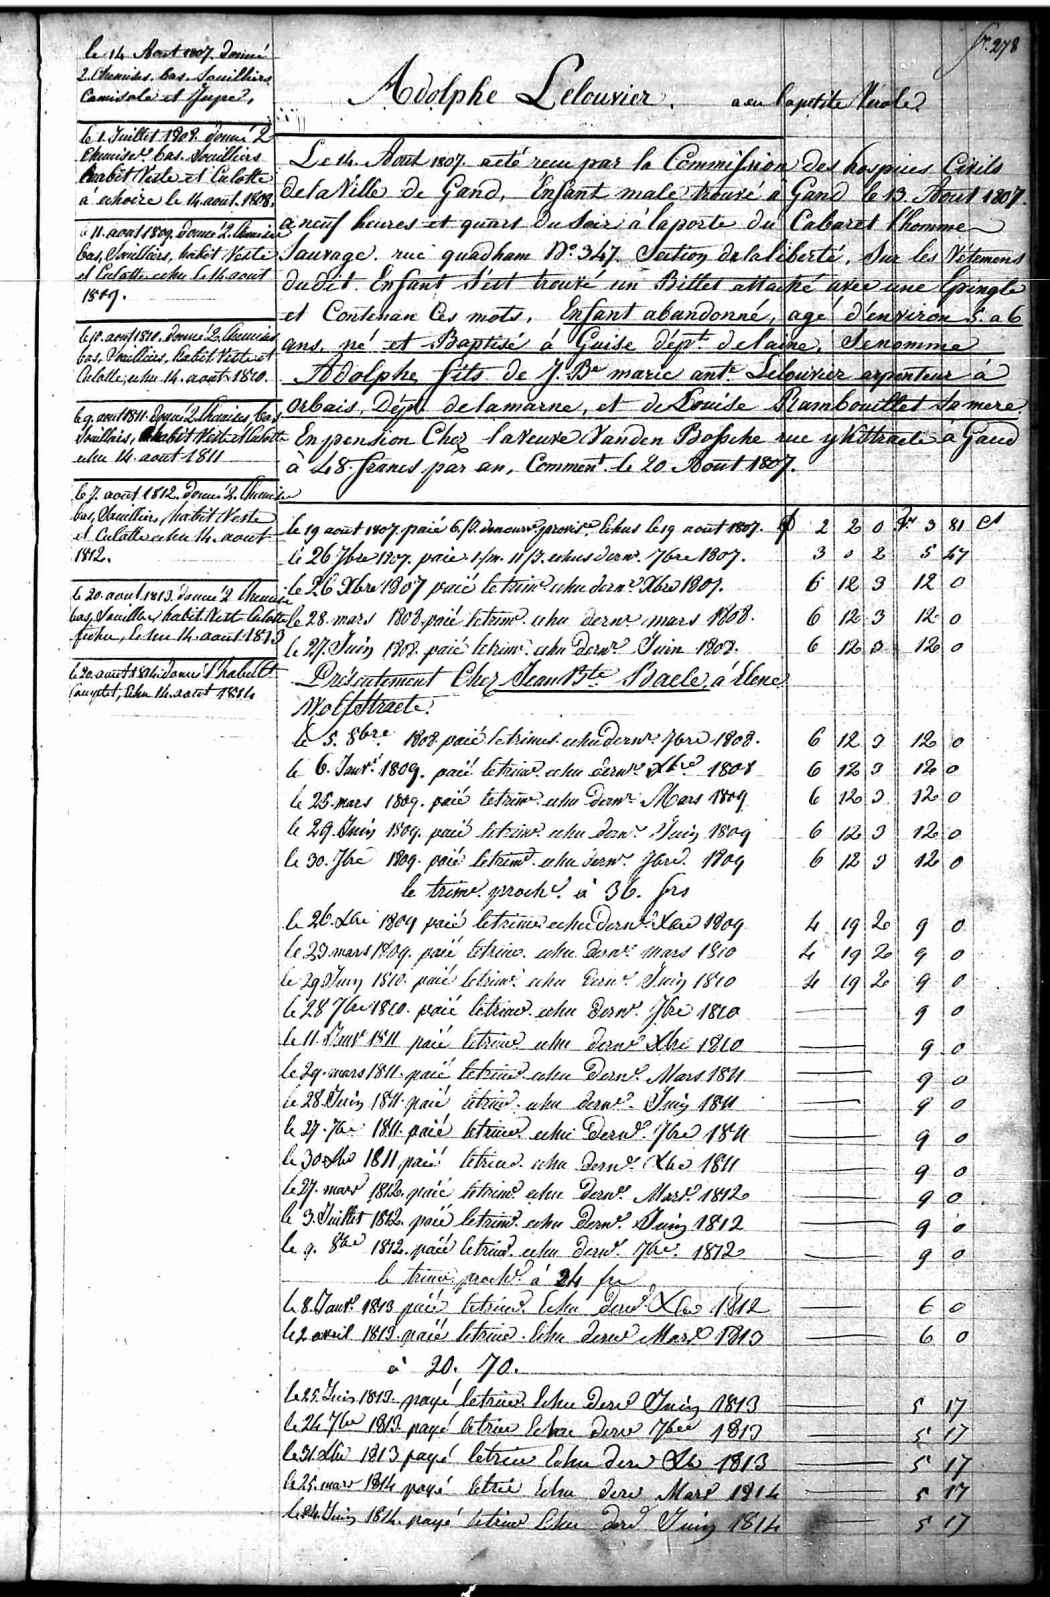 fo. 278
le 14 Aout 1807. donné
2 Chemises. bas. Souilliers
Camisole et Jupe,
le 1. Juillet 1808. donné 2
Chemises. bas. Souilliers
habit Veste et Culotte
à echoire le 14 aout. 1808.
le 11. aout 1809. donné 2 Chemises
bas, Souilliers, habit Veste
et Culotte echu le 14 aout
1809.
aout 1810. donné 2 Chemises
bas, Souilliers, habit Veste et
Culotte, echu 14. aout. 1810.
le 9. aout 1811. donné 2 Chemises, bas
Souilliers, habit Veste et Culotte
echu 14. aout 1811
le 7. aout 1812. donné 2. Chemises
bas, Souilliers, habit Veste
et Culotte echu 14. aout
1812.
le 20. aout 1813. donné 2 Chemises
bas, Souilliers habit Veste Culotte
fichu, Echu 14. aout 1813
le 20. aout 1814. donné 1 habillt
Complet, Echu 14. aout 1814
Adolphe Lelouvier. a eu la petite Vérole
Le 14. Aout 1807. a été recu par la Commission des hospices Civils
de la Ville de Gand, Enfant male trouvé a Gand le 13. Aout 1807.
a neuf heures et quart du Soir à la porte du Cabaret l'homme
Sauvage. rue quadham No. 347. Section de la liberté, Sur les Vétemens
dudit Enfant S'est trouvé un Billet attaché avec une Epingle
et Contenan Ces mots. Enfant abandonné, agé d'environ 5. a 6
ans, né et Baptisé à Guise dépt. de laine, Se nomme
Adolphe fils de J. Bte marie ante. Lelouvier arpenteur à
Orbais, Dépt. de la marne, et de Louise Rambouillet Sa mere.
En pension Chez la Veuve Vanden Bossche rue à Gand
à 48. francs par an, Comment. le 20. Aout 1807.
le 19 aout 1807. paié 6 echus le 19 aout 1807. 2 2 0 fr 3 81 cs
le 26 7bre 1807. paié echus dernr. 7bre 1807. 3 0 2 5 47
le 26 Xbre 1807 paié le trimr. echu dernr. Xbre 1807. 6 12 3 12 0
le 28. mars 1808. paié le trimr. echu dernr. mars 1808. 6 12 3 12 0
le 27. Juin 1808. paié le trimr. echu dernr. Juin 1808. 6 12 3 12 0
Présentement Chez Jean Bte. Baele, à Elene
Wolfstraete.
le 5. 8bre. 1808. paié le trimes. echu dernr. 7bre 1808. 6 12 3 12 0
le 6. Janvr. 1809. paié le trimr. echu dernr. Xbre 1808 6 12 3 12 0
le 25. mars 1809. paié le trimr. echu dernr. Mars 1809 6 12 3 12 0
le 29. Juin 1809. paié le trimr. echu dernr. Juin 1809 6 12 3 12 0
le 30. 7bre 1809. paié le trimr. echu dernr. 7bre. 1809 6 12 3 12 0
le trimr. proche. à 36. frs
le 26. Xbre 1809 paié le trimr. echu dernr. Xbre 1809 4 19 2 9 0
le 23 mars 1809. paié le trimr. echu dernr. mars 1810 4 19 2 9 0
le 29 Juin 1810. paié le trimr. echu dernr. Juin 1810 4 19 2 9 0
le 28 7bre 1810. paié le trimr. echu dernr. 7bre 1810 9 0
le 11. Janvr 1811 paié le trimr. echu dernr. Xbre 1810 9 0
le 29. mars 1811. paié le trimr. echu dernr. Mars 1811 9 0
le 28. Juin 1811. paié le trimr. echu dernr. Juin 1811 9 0
le 27. 7bre 1811. paié le trimr. echu dernr. 7bre 1811 9 0
le 30 Xbre 1811 paié le trimr. echu dernr. Xbre 1811 9 0
le 27. mars 1812. paié le trimr. echu dernr. Mars 1812 9 0
le 3. Juillet 1812. paié le trimr. echu dernr. Juin 1812 9 0
le 9. 8bre 1812. paié le trimr. echu dernr. 7bre. 1812 9 0
le trimr. proche. à 24 frs
le 8. Janvr. 1813 paié le trimr. Echu dernr Xbre 1812 6 0
le 2 avril 1813. paié le trimr. Echu dernr Mars 1813 6 0
à 20. 70.
le 25. Juin 1813. payé le trimr Echu dernr Juin 1813 5 17
le 24 7bre 1813. payé le trimr Echu dernr 7bre 1813 5 17
le 31 Xbre 1813 payé le trimr Echu dernr Xbre 1813 5 17
le 25. mars 1814 payé le trimr Echu dernr Mars 1814 5 17
le 24. Juin 1814. payé le trimr Echu dernr Juin 1814 5 17